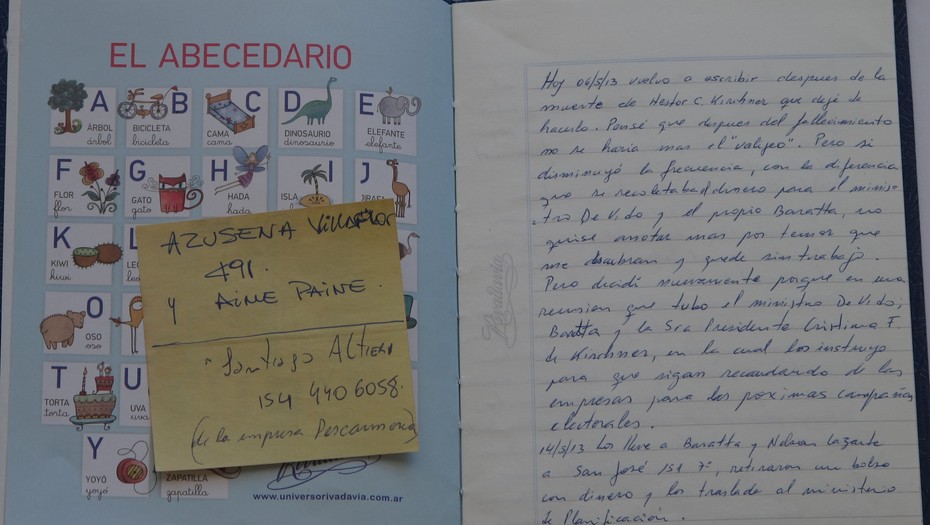 EL ABECEDARIO
A
ÁRBOL
árbol
B
BICICLETA
bicicleta
C
CAMA
cama
D
DINOSAURIO
dinosaurio
E
ELEFANTE
elefante
F
FLOR
flor
G
GATO
gato
H
HADA
hada
I
ISLA
J
JIRAFA
K
KIWI
kiwi
L
O
OSO
oso
T
TORTA
torta
U
UVA
uva
Y
YOYÓ
yoyó
ZAPATILLA
zapatilla
www.universorivadavia.com.ar
AZUSENA Villaflor
491.
Y AIME PAINE.
Santiago Altieri
154 440 6058.
(de la empresa Pescarmona)
Hoy 06/5/13 vuelvo a escribir despues de la
muerte de Nestor C. Kirchner que dejé de
hacerlo. Pensé que despues del fallecimiento
no se haria mas el "valijeo". Pero si
disminuyó la frecuencia, con la diferencia
que se recoletaba dinero para el minis-
tro De Vido y el propio Baratta, no
quise anotar mas por temor que
me descubran y quede sin trabajo.
Pero decidí nuevamente porque en una
reunion que tubo el ministro De Vido,
Baratta y la Sra Presidente Cristina F.
de Kirchner, en la cual los instruyo
para que sigan recaudando de las
empresas para las proximas campañas
electorales.
14/5/13 Los lleve a Baratta y Nelson Lazarte
a San José 151 7º, retiraron un bolso
con dinero y los traslade al ministerio
de Planificación.
Rivadavia